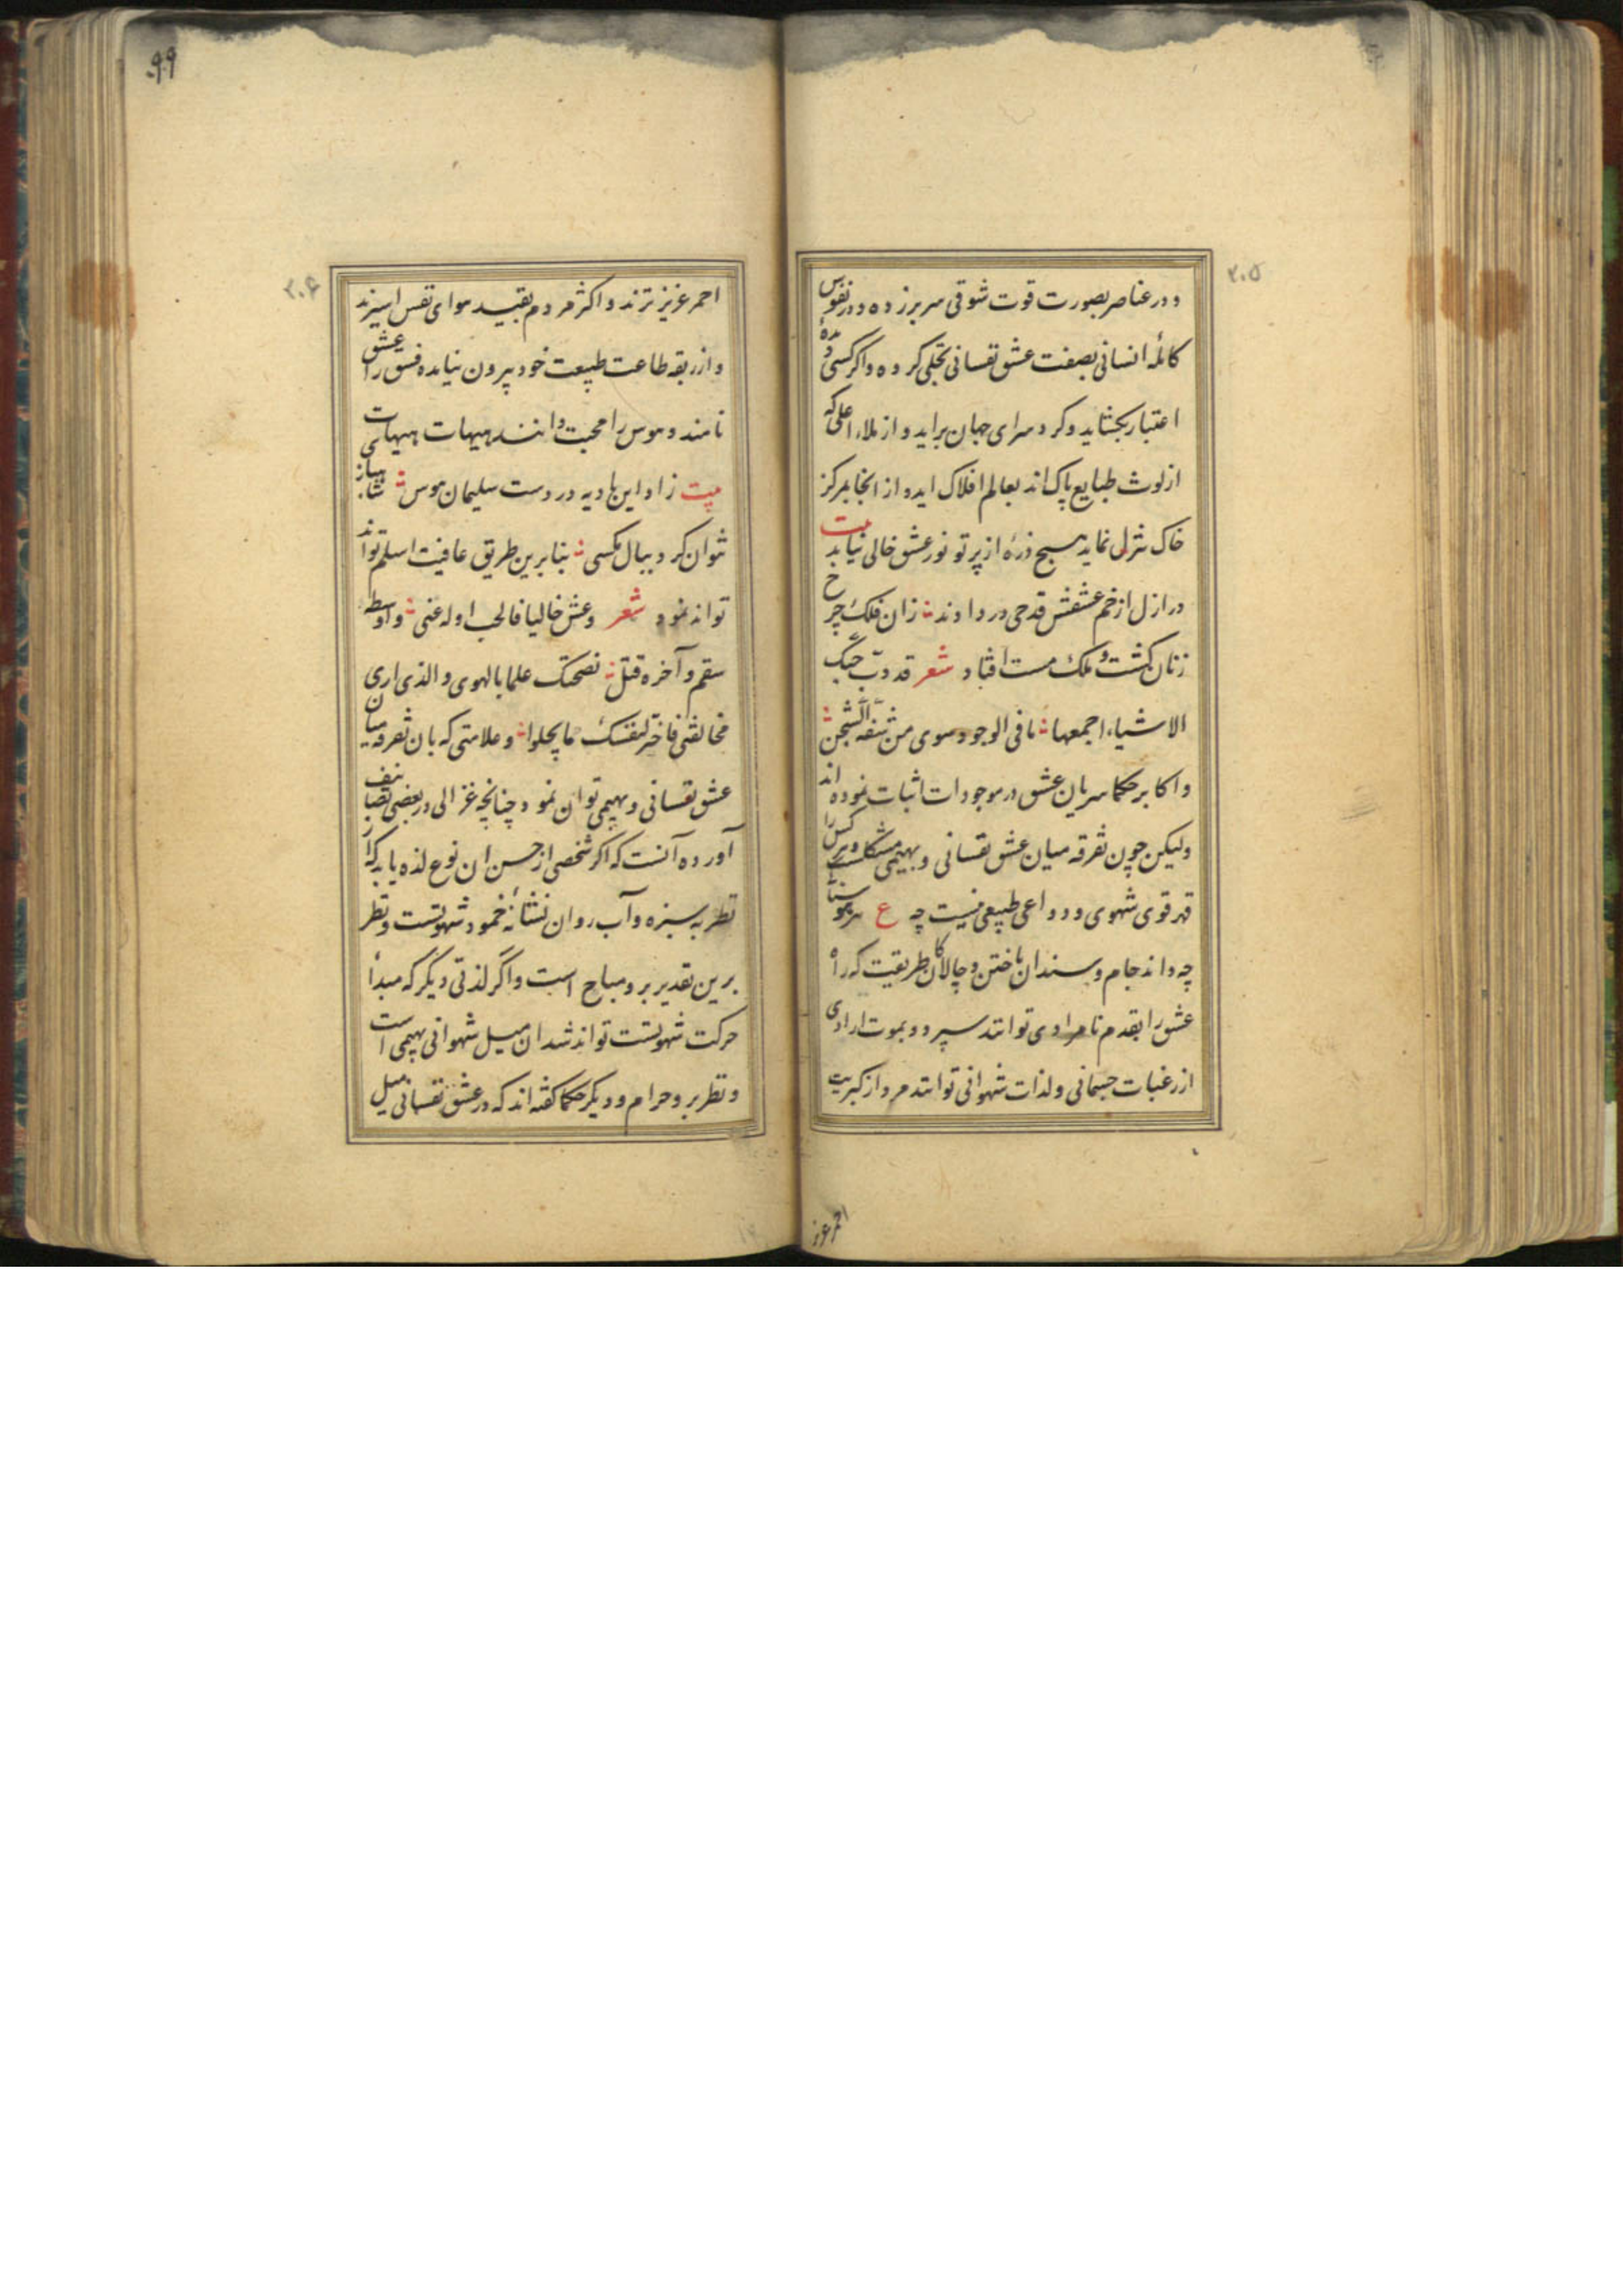 ۲۰۵
و در عناصر بصورت قوت شوقی سر برزده و در نفوس
کامله انسانی بصفت عشق نفسانی تجلی کرده و اکر کسی دیدهٔ
اعتبار بکشاید و کرد سرای جهان براید و از ملاء اعلی که
از لوث طبایع پاک اند بعالم افلاک اید و از انجا بمرکز
خاک تنزل نماید هیچ ذرهٔ از پرتو نور عشق خالی نیابد بیت
در ازل از خم عشقش قدحی در دادند زان فلک چرخ
زنان کشت و ملک مست افتاد شعر قد دبّ حبک
الاشیاء اجمعها ما فی الوجود سوی من شفه الشجن
و اکابر حکما سریان عشق در موجودات اثبات نموده اند
ولیکن چون تفرقه میان عشق نفسانی و بهیمی مشکلست و هر کس را
قهر قوی شهوی و دواعی طبیعی نیست چه ع هر هوسناک
چه داند جام و سندان باختن و چالاکان طریقت که راه
عشق را بقدم نامرادی توانند سپرد و بموت ارادی
از رغبات جسمانی ولذات شهوانی توانند مرد از کبریت
احمر عزیز
۹۹
۲۰۶
احمر عزیزترند و اکثر مردم بقید هوای نفس اسیرند
و از ربقه طاعت طبیعت خود بیرون نیایده فسق را عشق
نامند و هوس را محبت دانند هیهات هیهات
بیت زاد این بادیه در دست سلیمان هوس
نتوان کرد ببال مکسی بنابرین طریق عافیت اسلم تواند
تواند نمود شعر وعش خالیا فالحب اوله عنی واوسطه
سقم وآخره قتل نصحتک علما بالهوی والذی اری
مخالفتی فاختر لنفسک ما یحلوا و علامتی که بان تفرقه میان
عشق نفسانی و بهیمی توان نمود چنانچه غزالی در بعضی تصانیف
آورده آنست که اکر شخصی از حسن ان نوع لذه یابد که از
نظر به سبزه و آب روان نشأنه خمود شهوتست و نظر
برین تقدیر برو مباح است و اگر لذتی دیگر که مبدأ
حرکت شهوتست تواند شد ان میل شهوانی بهیمی است
و نظر برو حرام و دیکر حکما کفته اند که در عشق نفسانی میل